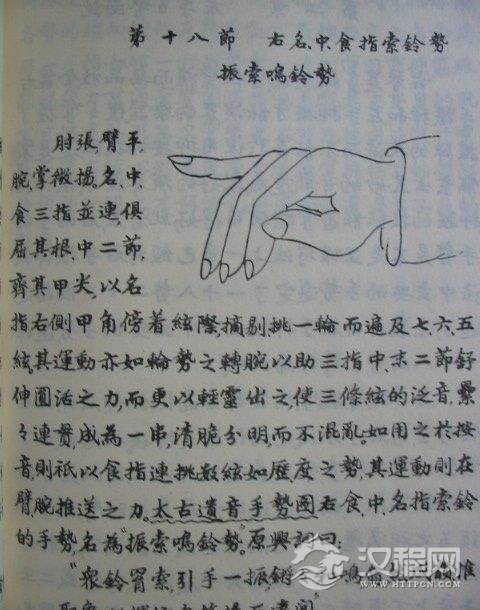 第十八節　右名、中、食指索鈴勢
振索鳴鈴勢
肘張臂平，
腕掌微揚。名、中、
食三指並連，俱
屈其根、中二節，
齊其甲尖，以名
指右側甲角傍着絃際，摘剔挑一輪而遍及七、六、五
絃其運動亦如輪勢之轉腕以助三指中、末二節舒
伸圓活之力，而更以輕靈出之，使三條絃的泛音，纍
々連貫，成為一串，清脆分明，而不混亂。如用之於按
音，則祇以食指連挑數絃如歷度之勢，其運動則在
臂腕推送之力。太古遺音手勢圖右食中、名指索鈴
的手勢，名為“振索鳴鈴勢”。原興詞曰：
“眾鈴罥索，引手一振，
汉程网
HTTPCN.COM